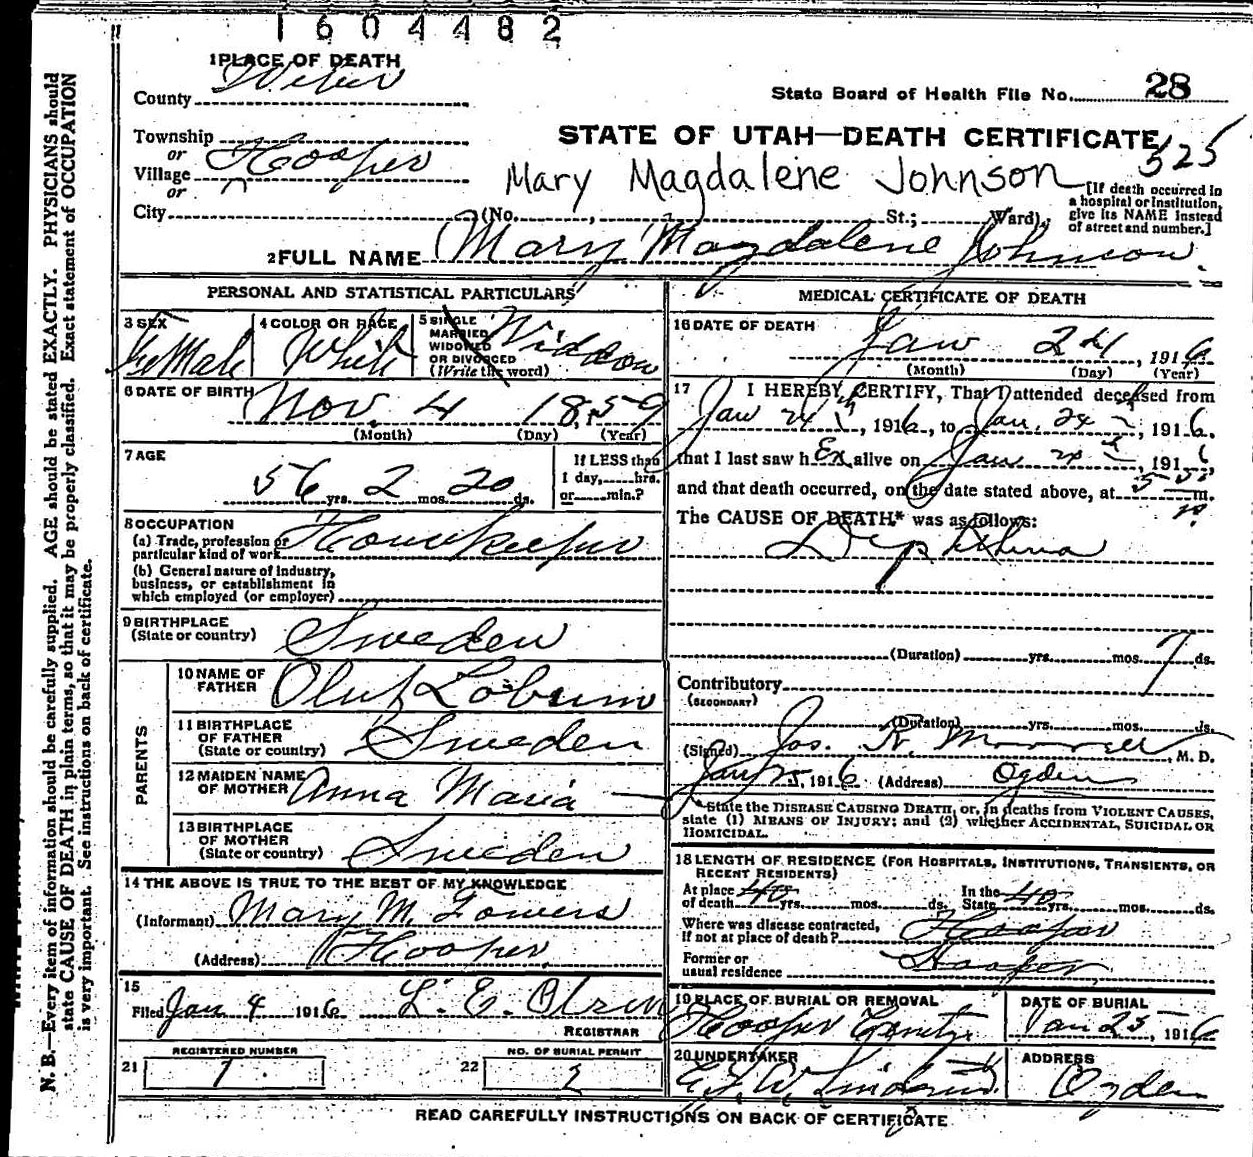 1604482
1 PLACE OF DEATH
County Weber
State Board of Health File No. 28
Township
or
Village Hooper
or
City (No. , St.; Ward)
STATE OF UTAH—DEATH CERTIFICATE
525
Mary Magdalene Johnson
[If death occurred in
a hospital or institution,
give its NAME instead
of street and number.]
2 FULL NAME Mary Magdalene Johnson
PERSONAL AND STATISTICAL PARTICULARS
3 SEX Female
4 COLOR OR RACE White
5 SINGLE
MARRIED
WIDOWED
OR DIVORCED
(Write the word) Widdow
6 DATE OF BIRTH Nov. 4 1859
(Month) (Day) (Year)
7 AGE
56 yrs. 2 mos. 20 ds.
If LESS than
1 day, hrs.
or min.?
8 OCCUPATION
(a) Trade, profession or
particular kind of work Housekeeper
(b) General nature of industry,
business, or establishment in
which employed (or employer)
9 BIRTHPLACE
(State or country) Sweden
PARENTS
10 NAME OF
FATHER Oluf
11 BIRTHPLACE
OF FATHER
(State or country) Sweden
12 MAIDEN NAME
OF MOTHER Anna Maria
13 BIRTHPLACE
OF MOTHER
(State or country) Sweden
14 THE ABOVE IS TRUE TO THE BEST OF MY KNOWLEDGE
(Informant) Mary M. Fowers
(Address) Hooper
15
Filed Jan 4 1916 L. E.
REGISTRAR
REGISTERED NUMBER
21 1
NO. OF BURIAL PERMIT
22 2
MEDICAL CERTIFICATE OF DEATH
16 DATE OF DEATH
Jan 24, 1916
(Month) (Day) (Year)
17 I HEREBY CERTIFY, That I attended deceased from
Jan 24, 1916, to Jan. 24, 1916.
that I last saw her alive on Jan 24, 1916,
and that death occurred, on the date stated above, at p m.
The CAUSE OF DEATH* was as follows:
Diptheria
(Duration) yrs. mos. 7 ds.
Contributory
(SECONDARY)
(Duration) yrs. mos. ds.
(Signed) Jos. R. Morrell, M. D.
Jan 25, 1916 (Address) Ogden
*State the DISEASE CAUSING DEATH, or, in deaths from VIOLENT CAUSES,
state (1) MEANS OF INJURY; and (2) whether ACCIDENTAL, SUICIDAL OR
HOMICIDAL.
18 LENGTH OF RESIDENCE (FOR HOSPITALS, INSTITUTIONS, TRANSIENTS, OR
RECENT RESIDENTS)
At place
of death 40 yrs. mos. ds.
In the
State 40 yrs. mos. ds.
Where was disease contracted,
If not at place of death? Hooper
Former or
usual residence Hooper
19 PLACE OF BURIAL OR REMOVAL
Hooper
DATE OF BURIAL
Jan 25, 1916
20 UNDERTAKER
ADDRESS
Ogden
READ CAREFULLY INSTRUCTIONS ON BACK OF CERTIFICATE
N. B.—Every item of information should be carefully supplied. AGE should be stated EXACTLY. PHYSICIANS should
state CAUSE OF DEATH in plain terms, so that it may be properly classified. Exact statement of OCCUPATION
is very important. See instructions on back of certificate.